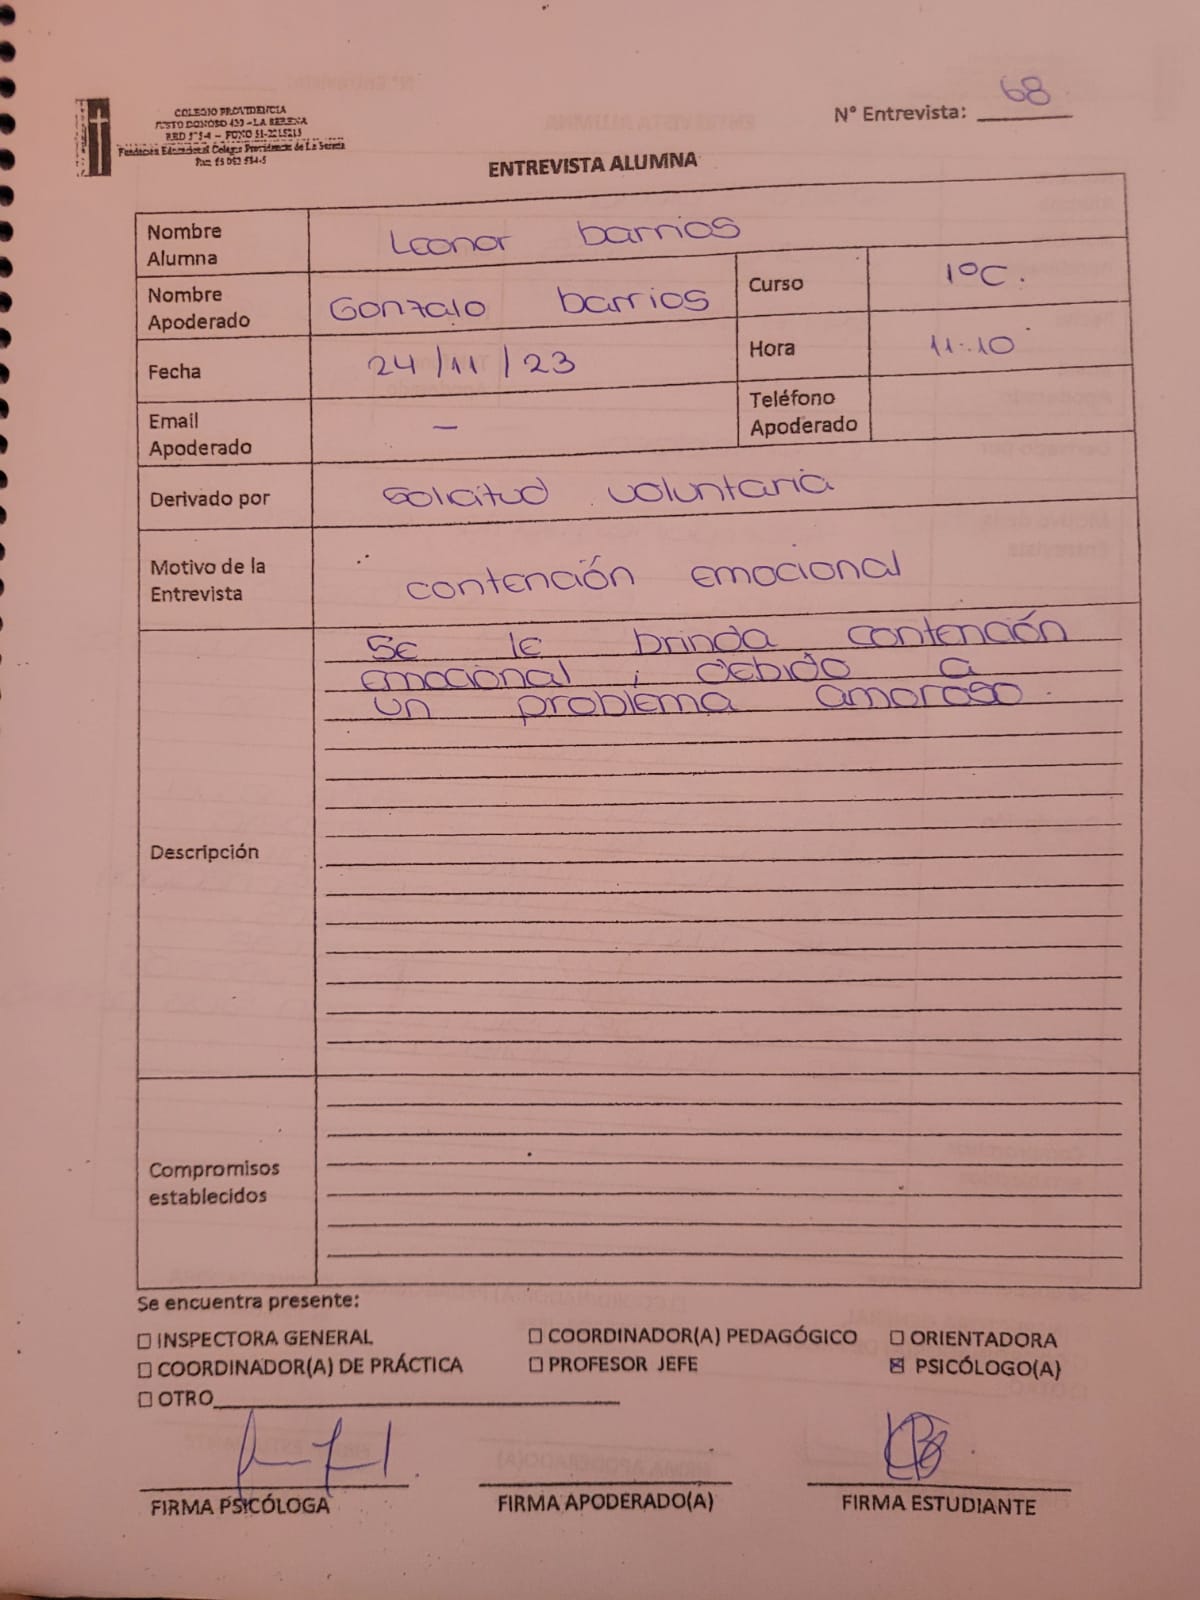 COLEGIO PROVIDENCIA
JUSTO DONOSO 420 - LA SERENA
FONO 51-2215215
Fundación Educacional Colegio Providencia de La Serena
N° Entrevista: 68
ENTREVISTA ALUMNA
Nombre Alumna Leonor barrios
Nombre Apoderado Gonzalo barrios Curso 1°C.
Fecha 24/11/23 Hora 11:10
Email Apoderado - Teléfono Apoderado
Derivado por Solicitud voluntaria
Motivo de la Entrevista contención emocional
Se le brinda contención
emocional, debido a
un problema amoroso.
Descripción
Compromisos
establecidos
Se encuentra presente:
☐ INSPECTORA GENERAL ☐ COORDINADOR(A) PEDAGÓGICO ☐ ORIENTADORA
☐ COORDINADOR(A) DE PRÁCTICA ☐ PROFESOR JEFE ☒ PSICÓLOGO(A)
☐ OTRO
FIRMA PSICÓLOGA FIRMA APODERADO(A) FIRMA ESTUDIANTE